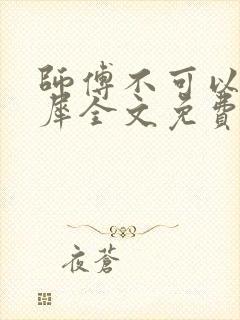 師傅不可以
犀全文免費
夜蒼